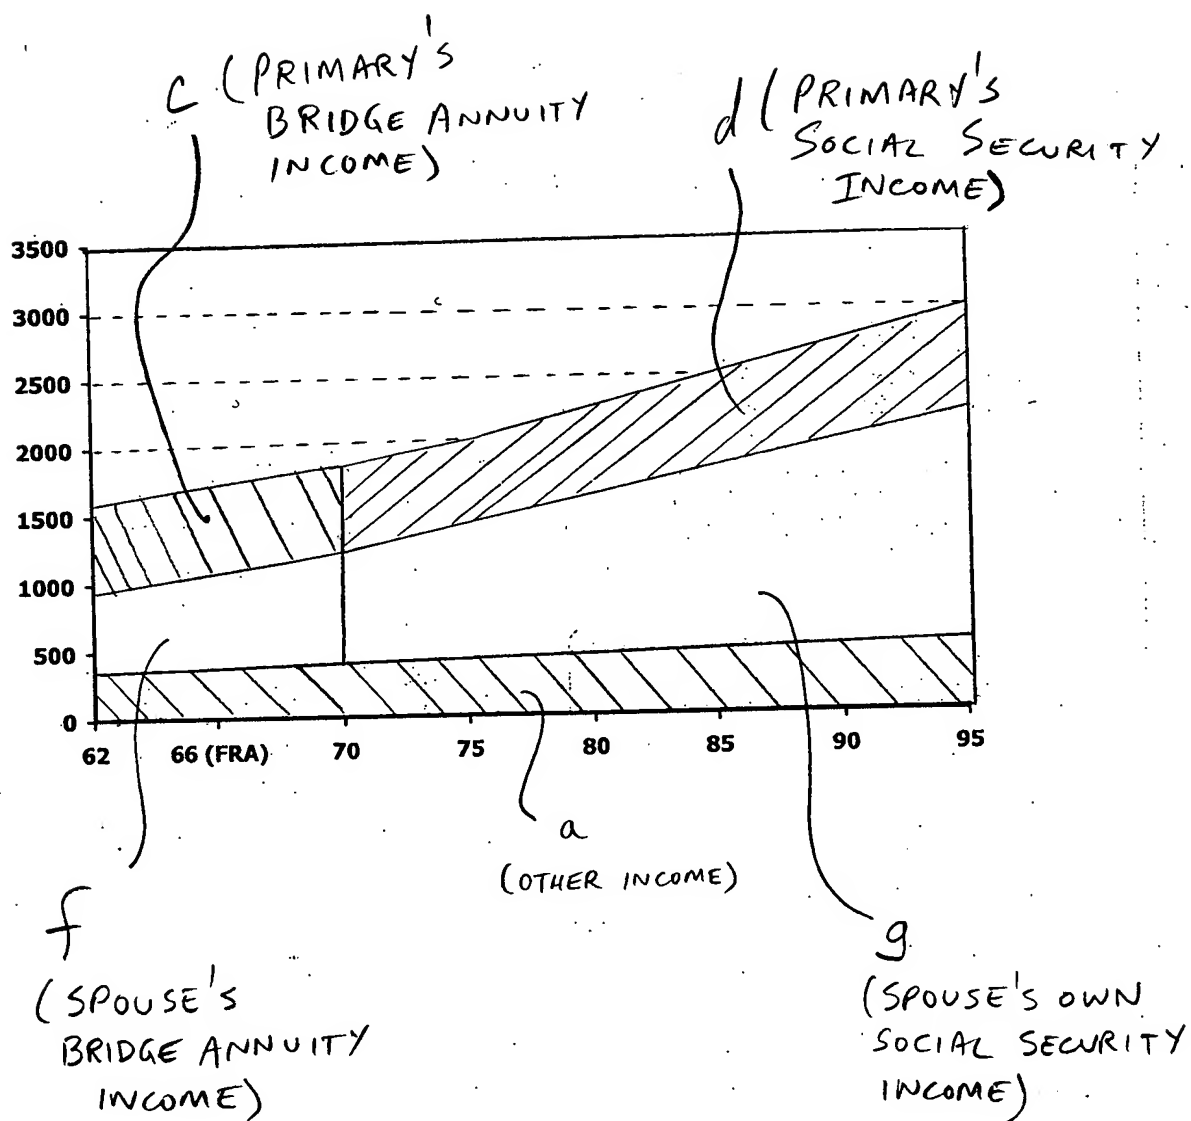 c (PRIMARY'S
BRIDGE ANNUITY
INCOME)
d (PRIMARY'S
SOCIAL SECURITY
INCOME)
3500
3000
2500
2000
1500
1000
500
0
62 66 (FRA) 70 75 80 85 90 95
a
(OTHER INCOME)
f
(SPOUSE'S
BRIDGE ANNUITY
INCOME)
g
(SPOUSE'S OWN
SOCIAL SECURITY
INCOME)